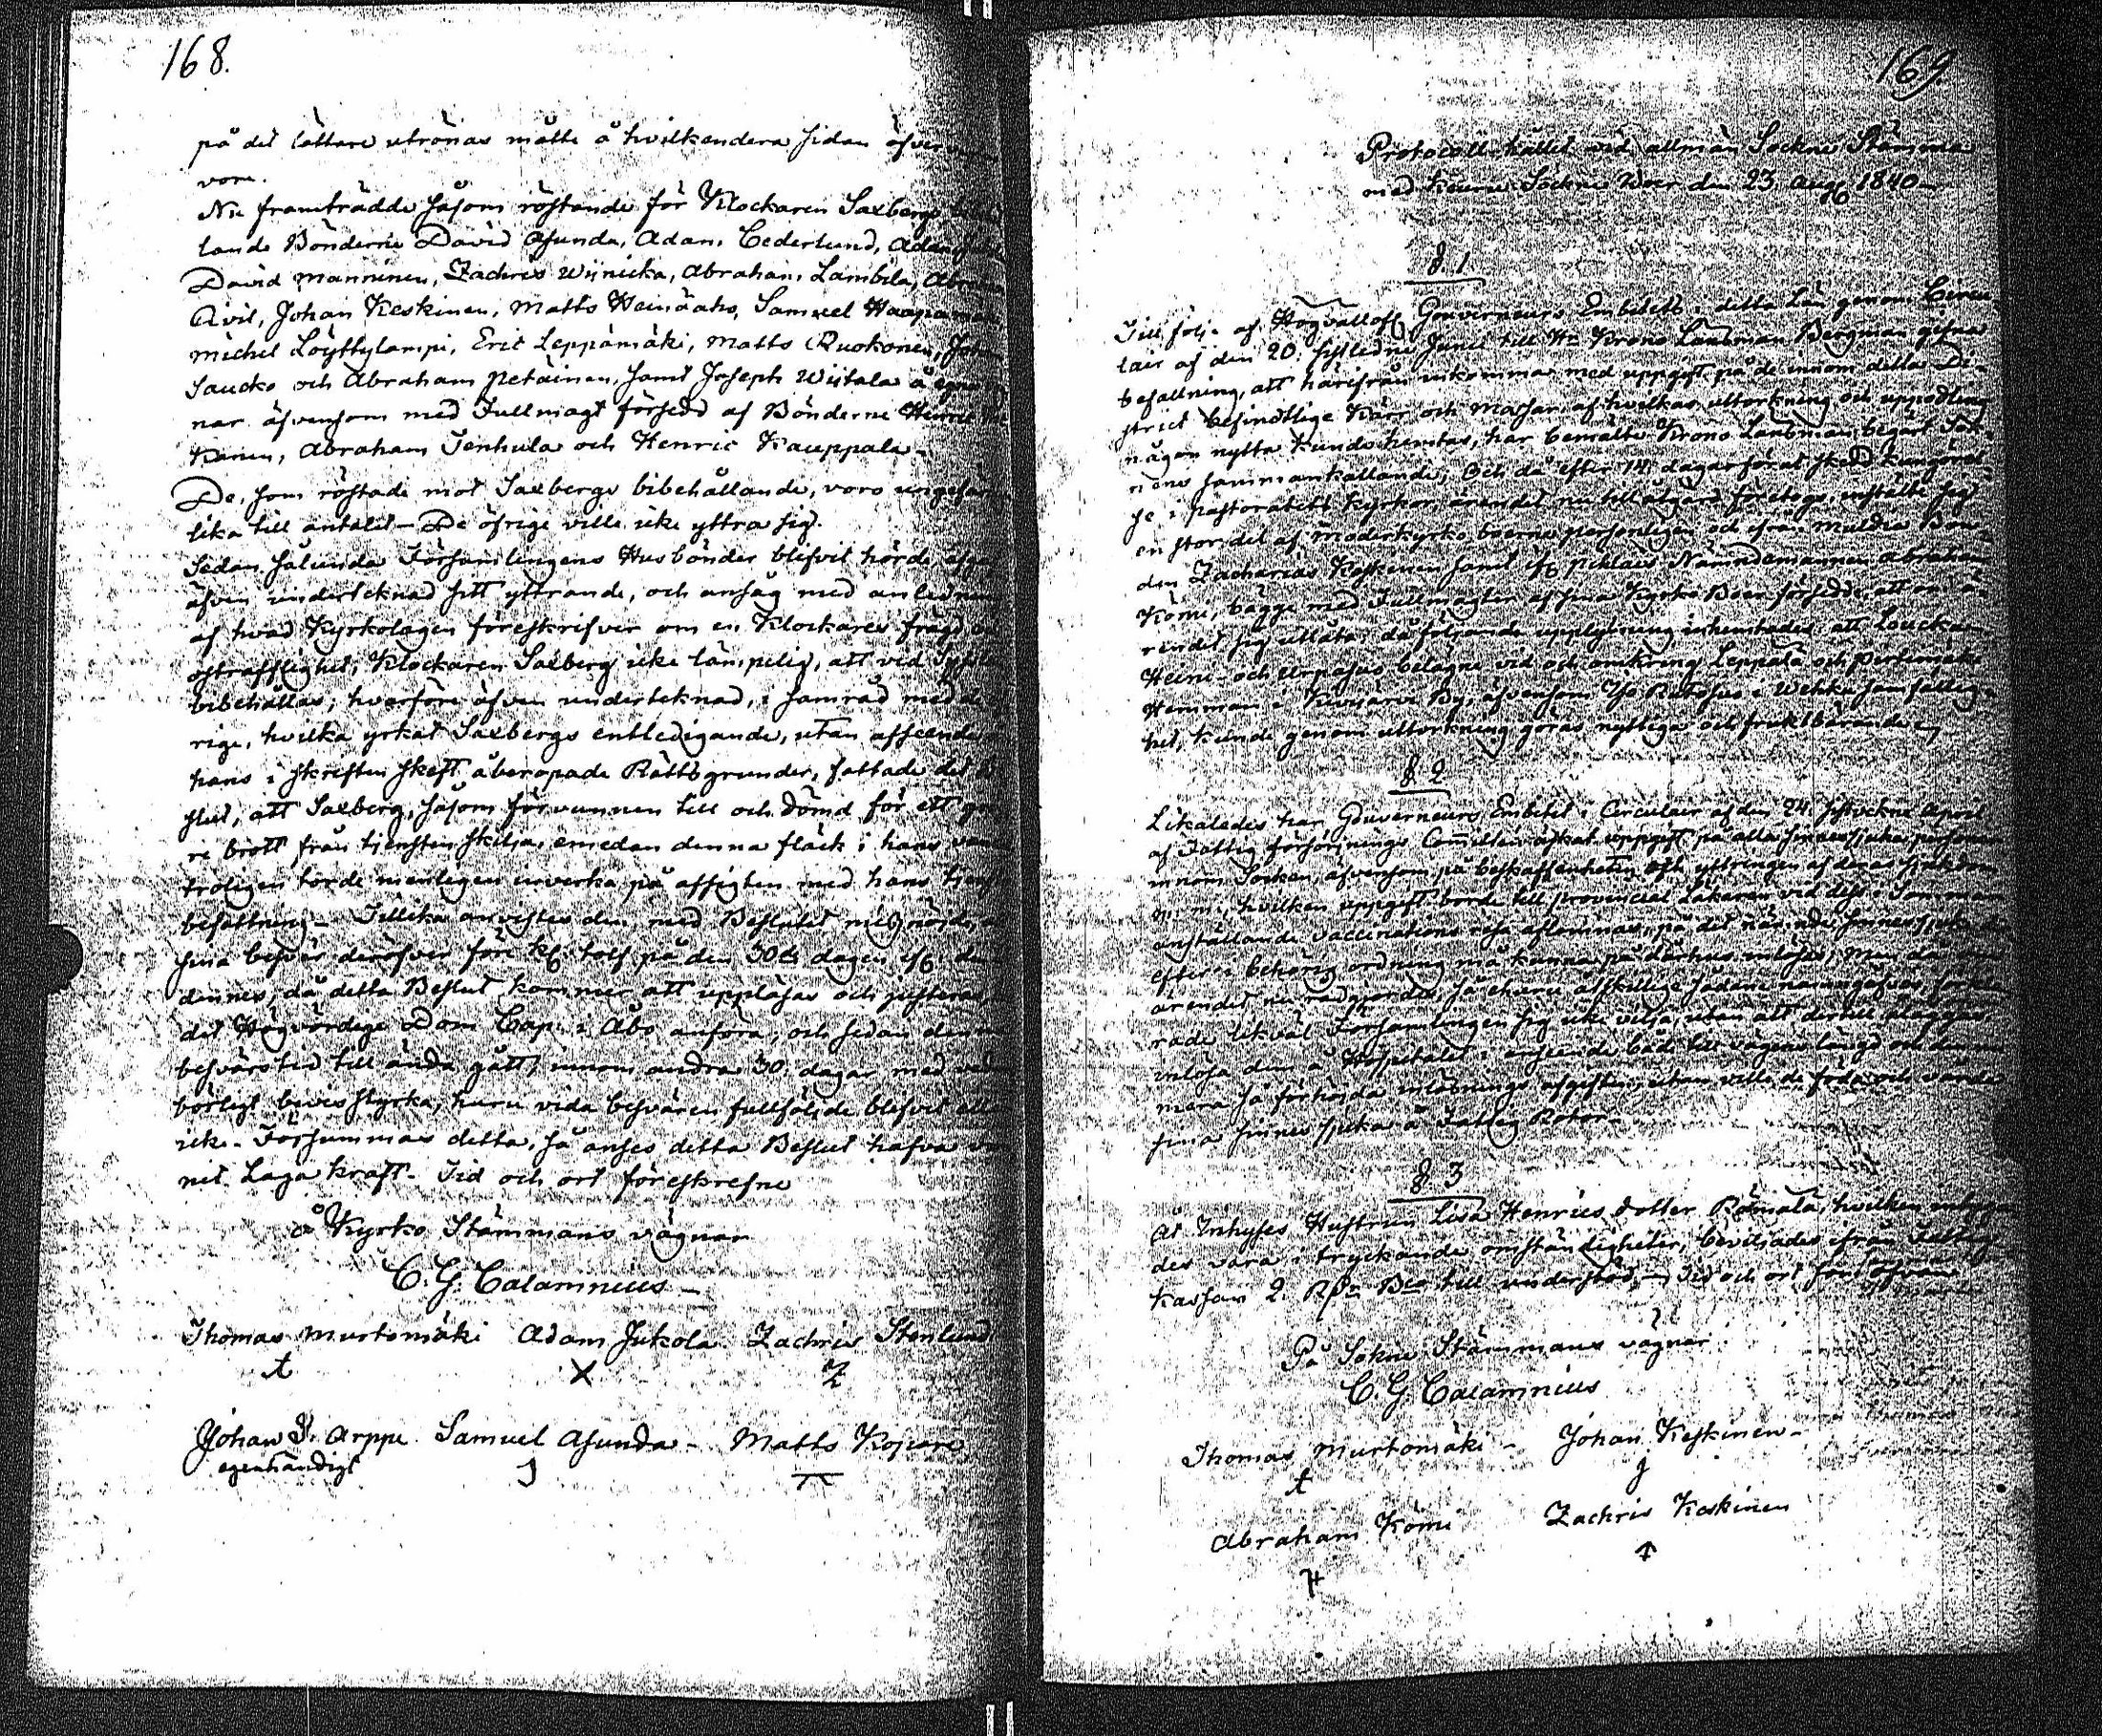 168.
på det lättare utrönas måtte å hvilkendera sidan öfver
vore.
Nu framträdde såsom röstande för Klockaren Saxbergs
lande Bönderne David Asunda, Adam Cederlund, Adam
David Manninen, Zachris Wiinicka, Abraham Lambila, Abraham
Qvil, Johan Keskinen, Matts Heinäaho, Samuel Haapaman
Michel Löyttylampi, Eric Leppämäki, Matts Ruokonen, Johan
Saucko och Abraham Petäinen, samt Joseph Wiitala å egna
nar äfvensom med Fullmagt försedd af Bönderne Henric
kanen, Abraham Tenhula och Henric Kauppala.
De, som röstade mot Saxbergs bibehållande, voro ungefär
lika till antalet – De öfrige ville icke yttra sig.
Sedan sålunda Församlingens Husbönder blifvit hörde, afgaf
äfven undertecknad sitt yttrande, och ansåg med anledning
af hvad Kyrkolagen föreskrifver om en Klockares frägd och
ostrafflighet, Klockaren Saxberg icke lämpelig, att vid Sysslan
bibehållas; hvarföre äfven undertecknad, i samråd med de
rige, hvilka yrkat Saxbergs entledigande, utan afseende å
hans i skriften skett åberopade Rättsgrunder, fattade det
slut, att Saxberg, såsom förvunnen till och dömd för ett grö
re brott från tjensten skiljas, emedan denna fläck i hans van
troligen torde menligen inverka på aflsigten med hans tjenst
befattning – Tillika anvistes den, med Beslutet missnöjde,
sina besvär deröfver före kl. tolf på den 30de dagen
dennes, då detta Beslut kommer att uppläsas och justeras,
det Högvördige Dom Cap: i Åbo anföra; och sedan denna
besvärstid till ända gått, innom andra 30 dagar med veder
börligt bevis styrka, huru vida besvären fullföljde blifvit eller
icke. Försummas detta, så anses detta Beslut hafva vun
nit Laga kraft. Tid och ort föreskrefne
å Kyrko Stämmans vägnar
C. G. Calamnius –
Thomas Murtomäki Adam Jukola Zachris Stenlund
Johan S. Arppe Samuel Asunda – Matts Kopare
egenhändigt
169
Protocoll hållet vid allmän Sockne Stämma
med Keuru Sockne Boer den 23 Aug 1840 –
§. 1.
Till följe af Högvällofl Gouverneurs Embetets i detta Län genom Circu
lair af den 20 sistledne Junii till Hr Krono Länsman Bergman gifna
befallning, att härifrån inkomma med uppgift på de innom detta Di-
strict befindtlige Kärr och Mossar, af hvilkas uttorkning och uppodling
någon nytta kunde hemtas, har bemälte Krono Länsman begärt Sock-
nens sammankallande; Och då efter 14 dagar förut skedd kungörel-
se i pastoratets kyrkor, ärendet nu till åtgärd företogs, inställte sig
en stor del af Moderkyrko boerne personligen och ifrån Muldia Bon-
den Zacharias Keskinen samt Pihlaiv. Nämndemannen Abraham
Kömi, bägge med Fullmagter af sina Kyrko Boer försedde, att om ä-
rendet sig utlåta; då följande upplysning inhemtades att Loucka
Heini- och Urpasuo belägne vid och omkring Leppälä och
Hemman i Kivijärvi By, äfvensom Iso Ratasuo i Wehka samfällig-
het, kunde genom uttorkning göras nyttiga och fruktbärande.
§ 2
Likaledes har Gouverneurs Embetet i Circulair af den 24 sistvekne April
af Fattig försörjnings Comitéen äskat uppgift på alla sinnessjuka personer
innom Socken, äfvensom på beskaffenheten och yttringen af deras sjukdom
m. m., hvilken uppgift borde till provincial Läkaren vid dess i Sommar
anställande vaccinations resa aflemnas, på det närande sinnessjuke der
efter i behörig ordning må kunna på dårhus inlösas; Men då om
ärendet nu rådgjordes, så ehuru åtskillige sådane närvarande, förkla
rade likväl Församlingen sig icke vilja, utan att dertill åläggas,
inlösa dem å Hospitalet i anseende både till vägens längd och den nu
mera så förhöjda inlösnings afgiften, utan ville de föda och vårda
sina sinnessjuka å Fattig Rotar.
§ 3
Åt Inhyses Hustrun Lisa Henrics dotter Römälä, hvilken intyga
des vara i tryckande omständigheter, beviljades ifrån Fattig
kassan 2 Rß Bco till understöd – Tid och ort som ofvan
På Sokne Stämmans vägnar
C. G. Calamnius
Thomas Murtomäki – Johan Keskinen –
Abraham Kömi Zachris Keskinen